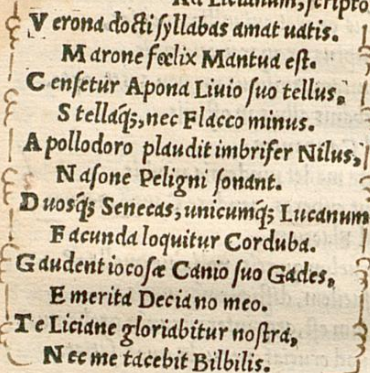 Ad Licianum, scripto
Verona docti syllabas amat uatis.
Marone fœlix Mantua est.
Censetur Apona Liuio suo tellus,
Stellaq́;, nec Flacco minus.
Apollodoro plaudit imbrifer Nilus,
Nasone Peligni sonant.
Duosq́; Senecas, unicumq́; Lucanum
Facunda loquitur Corduba.
Gaudent iocosæ Canio suo Gades,
Emerita Deciano meo.
Te Liciane gloriabitur nostra,
Nec me tacebit Bilbilis.